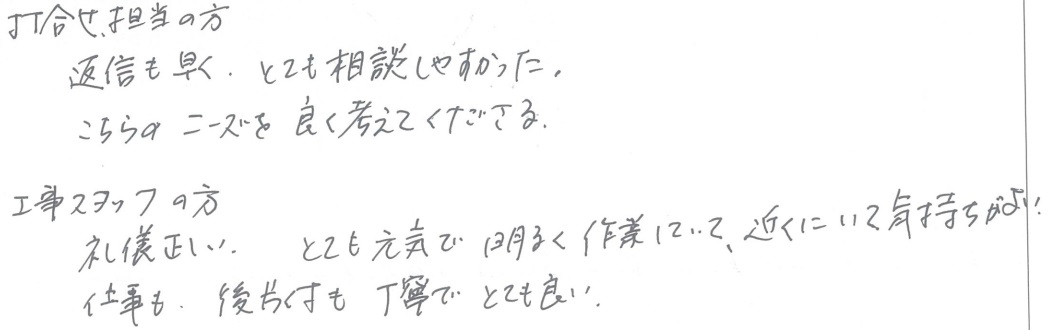 打合せ、担当の方
返信も早く、とても相談しやすかった。
こちらの ニーズを 良く考えてくださる。
工事スタッフの方
礼儀正しい。 とても元気で 明るく 作業していて、近くにいて気持ちがよい!
仕事も、後片付も 丁寧で とても良い。